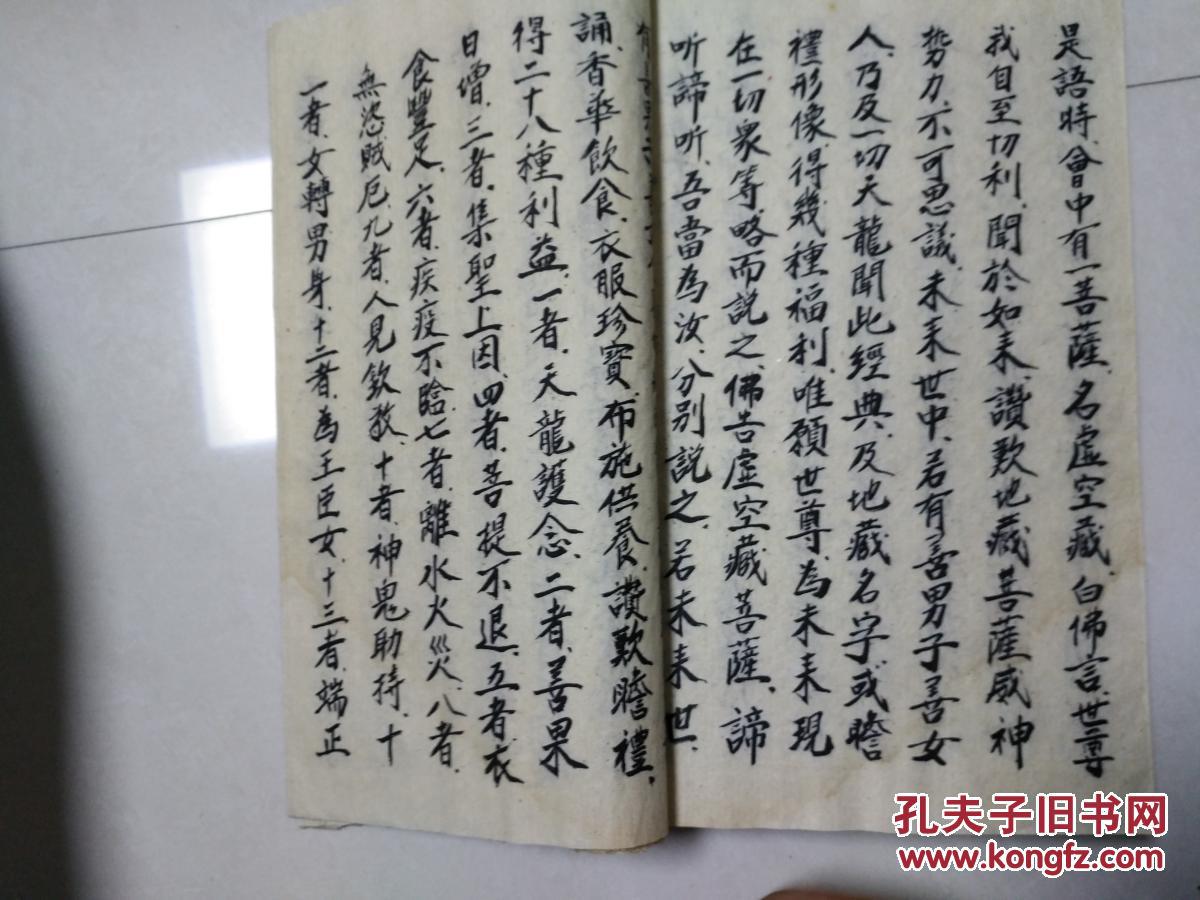 是語時、會中有一菩薩、名虛空藏、白佛言、世尊
我自至切利、聞於如来、讚歎地藏菩薩威神
势力、不可思議、未来世中、若有善男子善女
人、乃及一切天龍聞此經典、及地藏名字或瞻
禮形像、得幾種福利、唯願世尊、為未来現
在一切衆等略而説之、佛告虛空藏菩薩、諦
听諦听、吾當為汝、分别説之、若未来世、
有
誦、香華飲食、衣服珍寶、布施供養、讚歎瞻禮、
得二十八種利益、一者、天龍護念、二者、善果
日增、三者、集聖上因、四者、菩提不退、五者、衣
食豐足、六者、疾疫不臨、七者、離水火災、八者、
無恣賊厄、九者、人見欽敬、十者、神鬼助持、十
一者、女轉男身、十二者、為王臣女、十三者、端正
孔夫子旧书网
www.kongfz.com